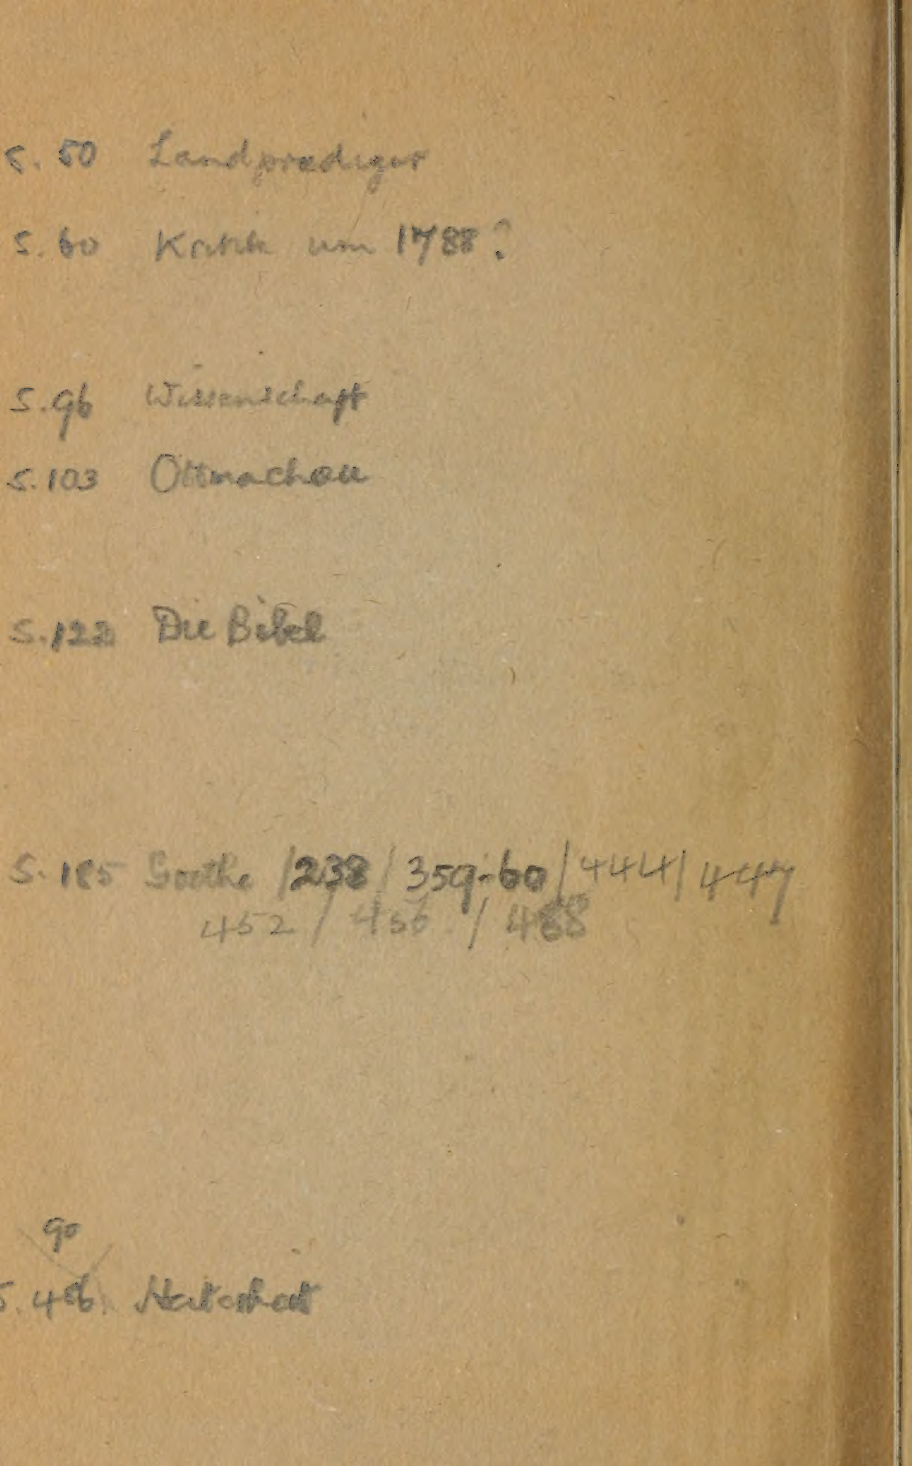 S. 50 Landprediger
S. 60 Kritik um 1788?
S. 96 Wissenschaft
S. 103 Ottmachau
S. 122 Die Bibel
S. 185 Goethe / 238 / 359-60 / 444 / 447
452 / 456 / 488
90
S. 486